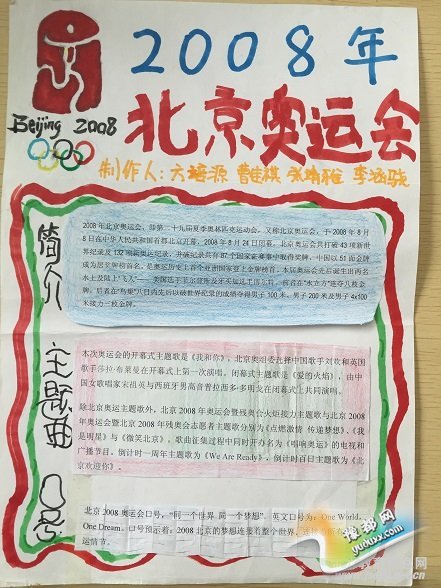 Beijing 2008
2008年
北京奥运会
制作人:
简介
2008年北京奥运会,即第二十九届夏季奥林匹克运动会,又称北京奥运会,于2008年8
月8日在中华人民共和国首都北京开幕,2008年8月24日闭幕。北京奥运会共打破43项新世
界纪录及132项新奥运纪录,共有87个国家在赛事中取得奖牌,中国以51面金牌
成为居奖牌榜首名,是奥运历史上首个亚洲国家登上金牌榜首。本届奥运会先后诞生出两名
水上及陆上“飞人”——美国选手菲尔普斯及牙买加选手博尔特,前者在“水立方”连夺八枚金
牌,后者在“鸟巢”只日内先后以破世界纪录的成绩夺得男子100米、男子200米及男子4x100
米接力三枚金牌。
主题曲
本次奥运会的开幕式主题歌是《我和你》,北京奥组委选择中国歌手刘欢和英国
歌手莎拉·布莱曼在开幕式上第一次演唱。闭幕式主题歌是《爱的火焰》,由中
国女歌唱家宋祖英与西班牙男高音普拉西多·多明戈在闭幕式上共同演唱。
除北京奥运主题歌外,北京2008年奥运会暨残奥会火炬接力主题歌与北京2008
年奥运会暨北京2008年残奥会志愿者主题歌分别为《点燃激情 传递梦想》、《我
是明星》与《微笑北京》,歌曲征集过程中同时开办名为《唱响奥运》的电视和
广播节目。倒计时一周年主题歌为《We Are Ready》,倒计时百日主题歌为《北
京欢迎你》。
口号
北京2008奥运会口号,“同一个世界 同一个梦想”,英文口号为:One World,
One Dream。口号预示着:2008北京的梦想连接着整个世界,
运情节。
豫都网
yuduxx.com